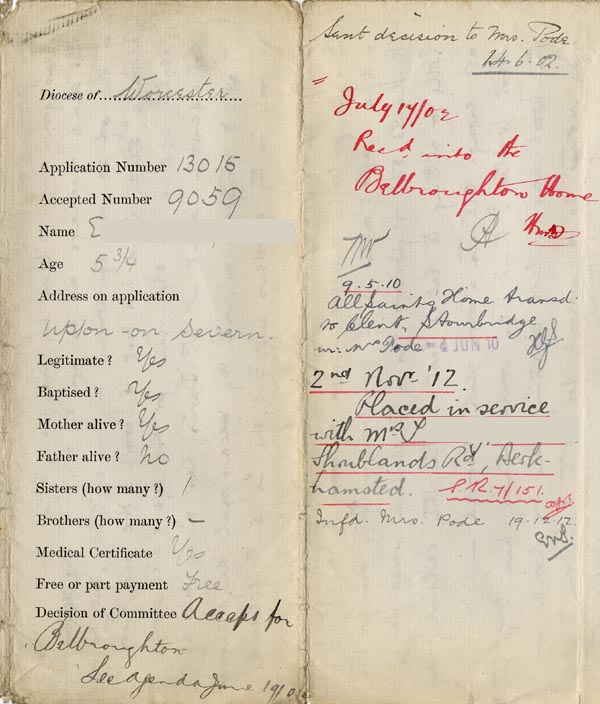 Diocese of Worcester
Application Number 13015
Accepted Number 9059
Name E
Age 5 3/4
Address on application
Upton-on Severn.
Legitimate? Yes
Baptised? Yes
Mother alive? Yes
Father alive? No
Sisters (how many?) 1
Brothers (how many?) –
Medical Certificate Yes
Free or part payment Free
Decision of Committee Accept for
Belbroughton
See Agenda June 19/02
Sent decision to Mrs. Pode
24.6.02.
July 17/02
Recd into the
Belbroughton Home
9.5.10
All Saints Home transd:
to Clent, Stourbridge
Mrs Pode – 4 JUN 10
2nd Novr '12.
Placed in service
with Mrs
Shrublands Rd, Berk-
hamsted. S.R. 7/151.
Infd. Mrs. Pode 19.12.12.